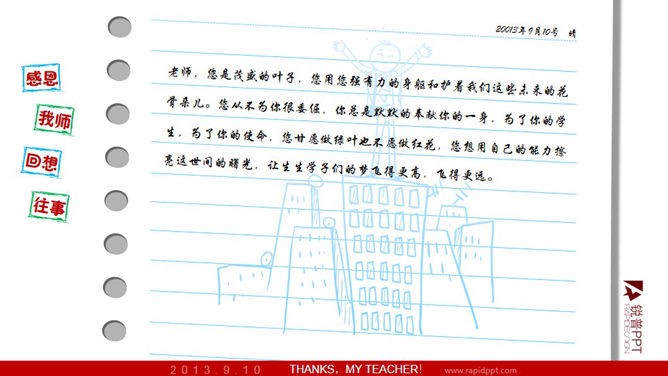 20013年9月10号 晴
老师，您是茂盛的叶子，您用您强有力的身躯和护着我们这些未来的花
骨朵儿。您从不为你很委佢，你总是默默的奉献你的一身，为了你的学
生，为了你的使命，您甘愿做绿叶也不愿做红花，您想用自己的能力擦
亮这世间的曙光，让生生学子们的梦飞得更高，飞得更远。
感恩
我师
回想
往事
锐普PPT
RAPIDESIGN
2013.9.10
THANKS，MY TEACHER!
www.rapidppt.com